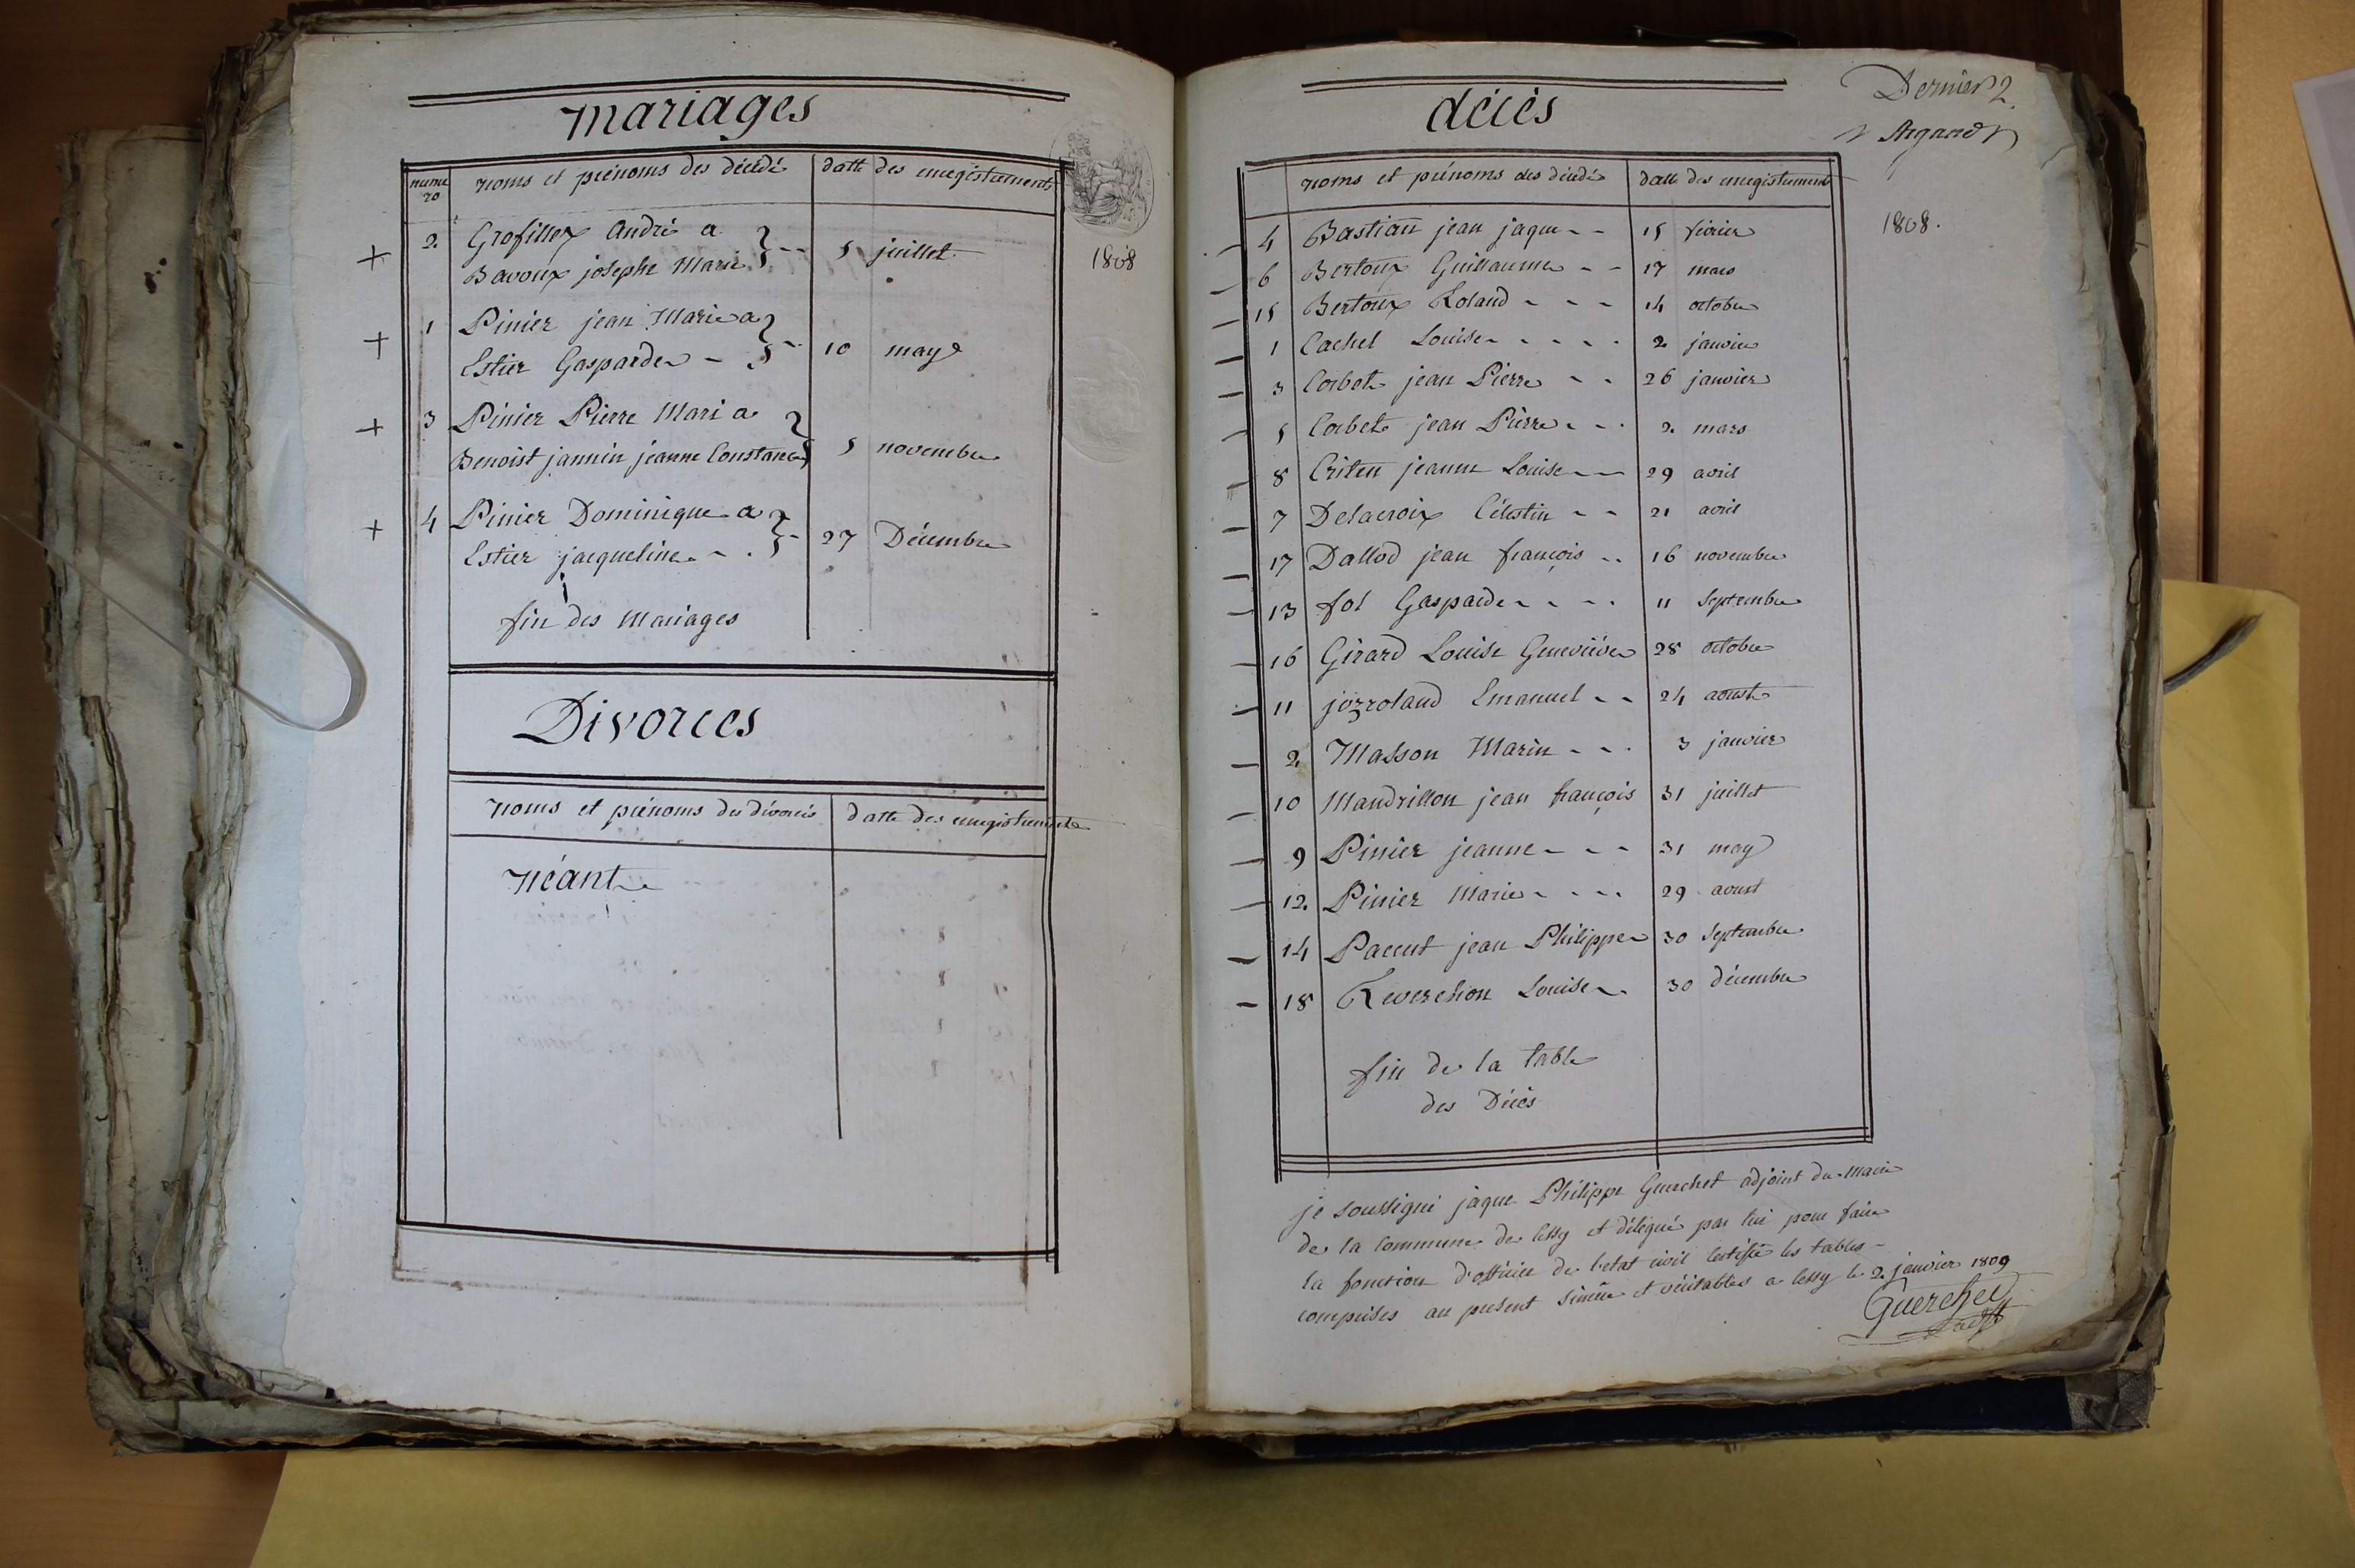 mariages
nume
ro
noms et prénoms des décédé
datte des enregistrements
2. Grofillex André a
Bavoux josephe Marie
5 juillet
1808
1 Pinier jean Marie a
Estier Gasparde
10 may
3 Pinier Pierre Mari a
Benoist jannin jeanne Constance
5 novembre
4 Pinier Dominique a
Estier jacqueline
27 Décembre
fin des Mariages
Divorces
noms et prénoms des divorcés
datte des enregistrements
Néant
Dernier 2.
décès
noms et prénoms des décédés
datte des enregistrements
1808.
4 Bastian jean jaque 15 février
6 Bertoux Guillaume 17 mars
15 Bertoux Roland 14 octobre
1 Cachet Louise 2 janvier
3 Corbet jean Pierre 26 janvier
5 Corbet jean Pierre 2. mars
8 Criten jeanne Louise 29 avril
7 Delacroix Célestin 21 avril
17 Dallod jean françois 16 novembre
13 fol Gasparde 11 septembre
16 Girard Louise Geneviève 28 octobre
11 jozroland Emanuel 24 aoust
2. Masson Marin 3 janvier
10 Mandrillon jean françois 31 juillet
9 Pinier jeanne 31 may
12. Pinier Marie 29 aoust
14 Pacent jean Philippe 30 septembre
18 Reverchon Louise 30 décembre
fin de la table
des Décès
je soussigné jaque Philippe Guerchet adjoint du Maire
de la Commune de lessy et délégué par lui pour faire
la fonction d'officier de l'etat civil certifie les tables
comprises au present sincère et véritables a lessy le 2. janvier 1809
Guerchet
adjt